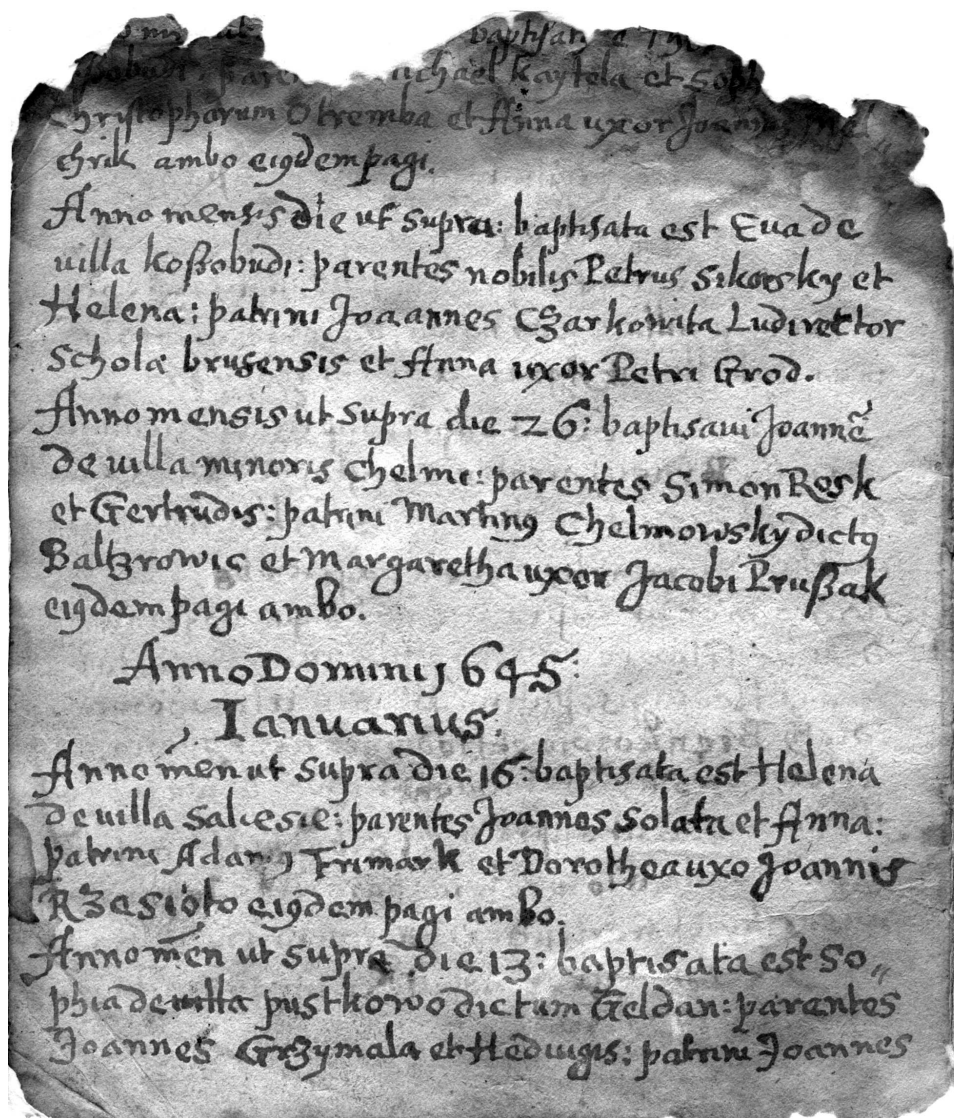 baptisa
Michael Kaytela et Soph
Christopharum Otremba et Anna uxor Joannis
chrik ambo eiꝰdem pagi.
Anno mensis die ut supra: baptisata est Eua de
uilla koßobudi: parentes nobilis Petrus Sikorsky et
Helena: patrini Joaannes Czarkowita Ludirector
Scholæ brusensis et Anna uxor Petri Grod.
Anno mensis ut supra die 26: baptisaui Joannē
de uilla minoris Chelmi: parentes Simon Resk
et Gertrudis: patrini Martinꝰ Chelmowsky dictꝰ
Baltzrowic et Margaretha uxor Jacobi Prußak
eiꝰdem pagi ambo.
Anno Domini 1645:
Ianuarius.
Anno mēn ut supra die 16: baptisata est Helena
de uilla Salesie: parentes Joannes Solata et Anna:
patrini Adamꝰ Trimark et Dorothea uxo Joannis
Rzesioto eiꝰdem pagi ambo.
Anno mēn ut supra die 13: baptisata est So„
phia de uilla pustkowo dictum Geldan: parentes
Joannes Grzymala et Heduigis: patrini Joannes